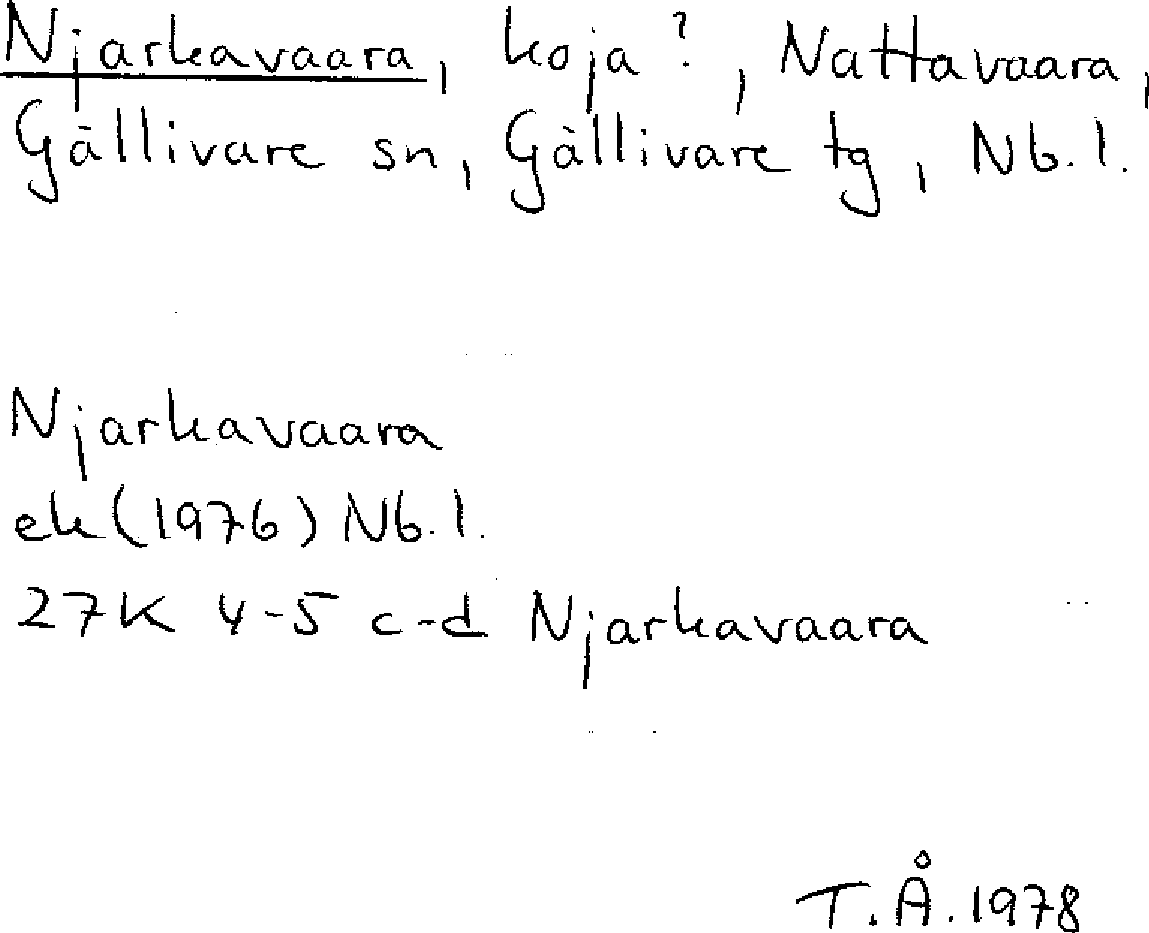 Njarkavaara, koja?, Nattavaara,
Gällivare sn, Gällivare tg, Nb.l.
Njarkavaara
ek(1976) Nb.l.
27K 4-5 c-d Njarkavaara
T.Å.1978